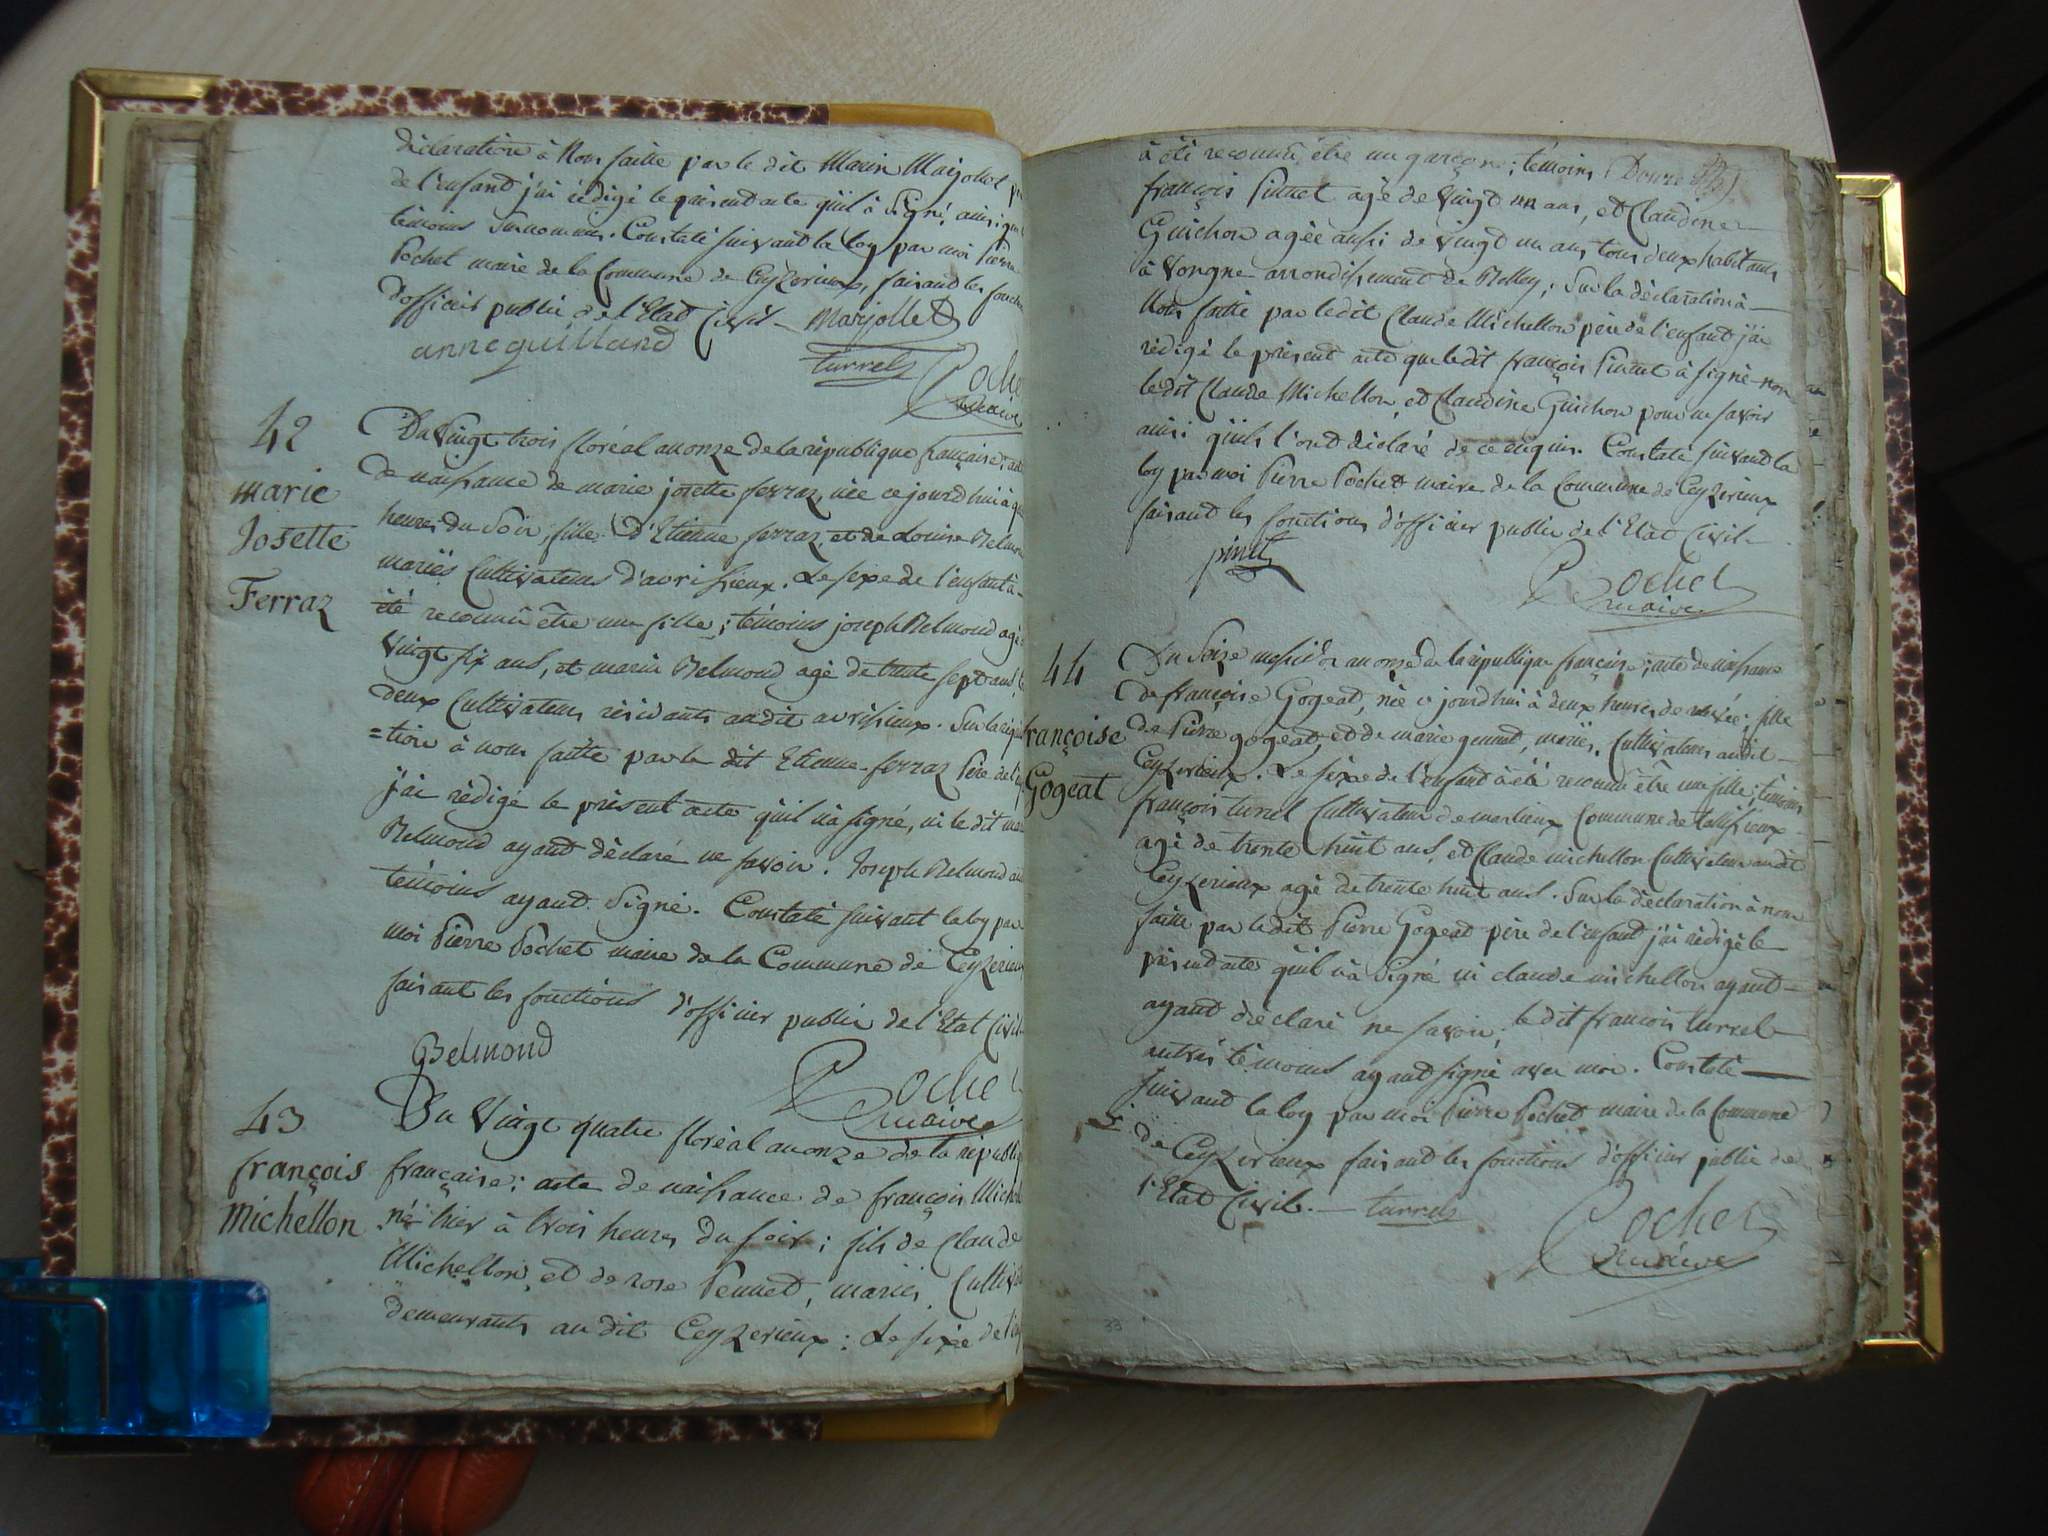 déclaration à Nous faitte par le dit Marin Marjollet
de l'enfand j'ai rédigé le présend acte qu'il à Signé, ainsi que
témoins Surnommés. Constaté suivand la loy par moi Pierre
Pochet maire de la Commune de Ceyzerieux, faisand les fonctions
d'officier public de l'Etad Civil — Marjollet
anne quilland
turrel
Pochet
maire
42
marie
Josette
Ferraz
Du Vingt trois floréal an onze de la république française; acte
de naissance de marie josette ferraz, née ce jourd'hui à
heures du Soir, fille d'Etienne ferraz, et de Louise Belmond
mariés Cultivateurs d'avrissieux. Le sexe de l'enfant à
été reconnû être une fille; témoins joseph Belmond agé
Vingt six ans, et marin Belmond agé de trente sept ans,
deux Cultivateurs résidants audit avrissieux. Sur la
=tion à nous faitte par le dit Etienne ferraz Père de
j'ai rédigé le présent acte qu'il n'a signé, ni le dit
Belmond ayand déclaré ne savoir. Joseph Belmond
témoins ayand Signé. Constaté suivant la loy par
moi Pierre Pochet maire de la Commune de Ceyzerieux
faisant les fonctions d'officier public de l'Etat Civil
Belmond
Pochet
maire
43
françois
Michellon
Du Vingt quatre floréal an onze de la républiq
française: acte de naissance de françois Michel
né hier à trois heures du soir; fils de Claude
Michellon, et de rose Pennet, mariés, Cultiv
demeurants au dit Ceyzerieux: Le sexe de
à été reconnû être un garçon; témoins
françois Pinnet agé de Vingt un ans, et Claudine
Guichon agée aussi de vingt un ans tous deux habitants
à Vongne arrondissement de Belley; Sur la déclaration à —
Nous faitte par ledit Claude Michellon père de l'enfand j'ai
rédigé le présent acte que ledit françois Pinnet à signé non
ledit Claude Michellon, et Claudine Guichon pour ne savoir
ainsi qu'ils l'ond déclaré de ce enquis. Constaté suivand la
loy par moi Pierre Pochet maire de la Commune de Ceyzerieux
faisand les fonctions d'officier public de l'Etat Civil
pinet
Pochet
maire
44
françoise
Gogeat
Du Seize messidor an onze de la république française; acte de naissance
de françoise Gogeat, née ce jourd'hui à deux heures de; fille
de Pierre gogeat, et de marie gennet, mariés, Cultivateurs audit —
Ceyzerieux. Le sexe de l'enfand à été reconnû être une fille; témoins
françois turrel Cultivateur de marlieux Commune de talissieux
agé de trente huit ans, et Claude michellon Cultivateur audit
Ceyzerieux agé de trente huit ans. Sur la déclaration à nous
faitte par le dit Pierre Gogeat père de l'enfand j'ai rédigé le
présend acte qu'il n'a Signé ni claude michellon ayand —
ayand déclaré ne savoir; le dit françois turrel
autres témoins ayand signé avec moi. Constaté —
suivand la loy par moi Pierre Pochet maire de la Commune
de Ceyzerieux faisand les fonctions d'officier public de
l'Etad Civil. — turrel
Pochet
maire
33